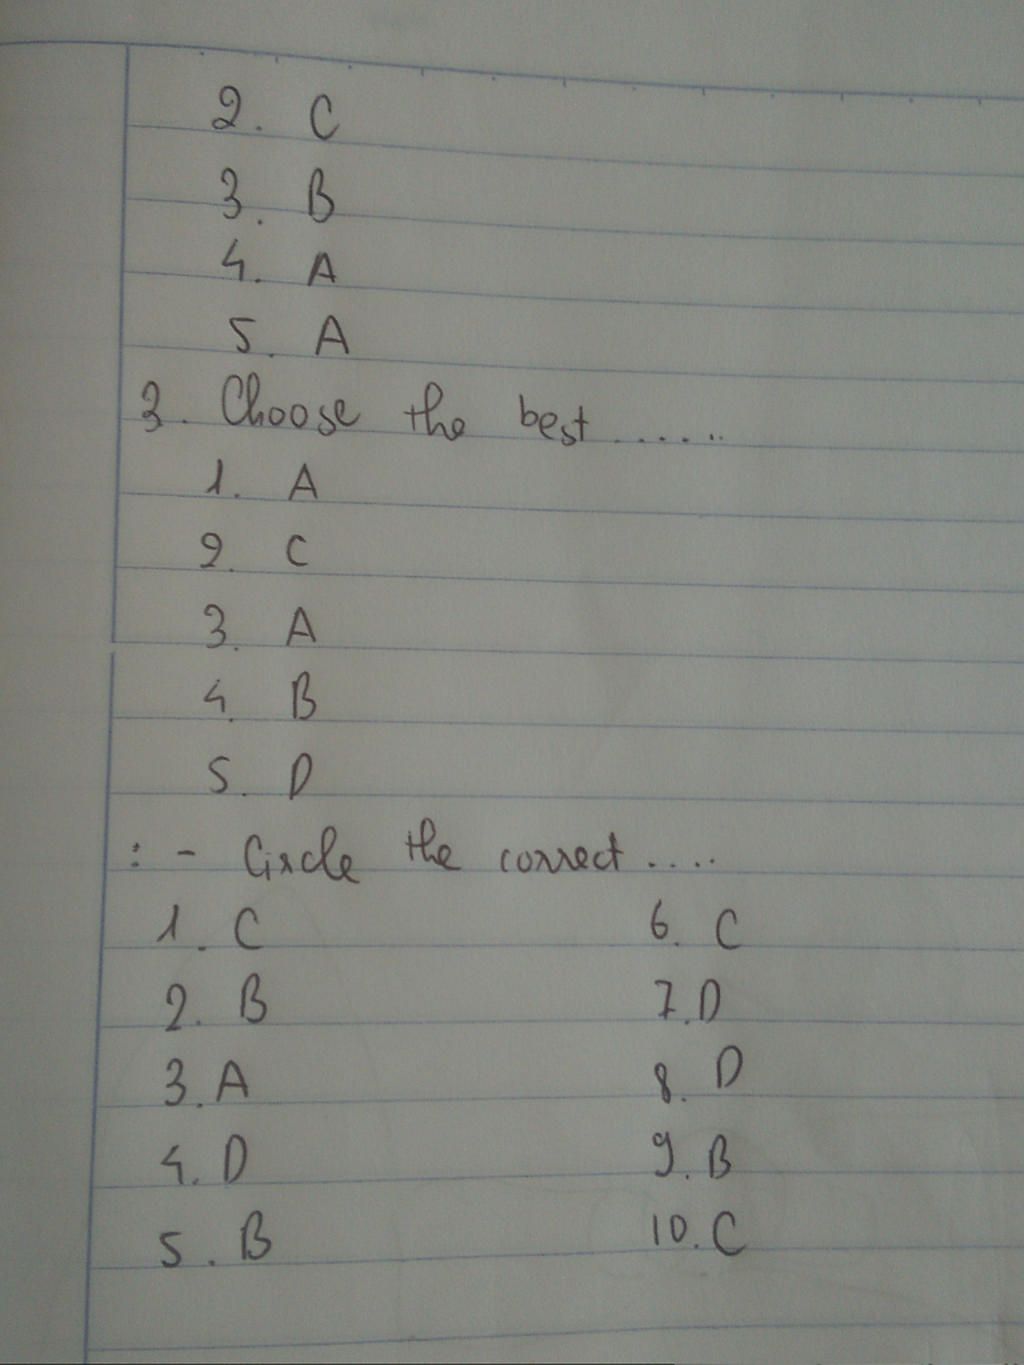 2. C
3. B
4. A
5. A
3. Choose the best ......
1. A
2. C
3. A
4. B
5. D
: - Circle the correct ....
1. C
2. B
3. A
4. D
5. B
6. C
7. D
8. D
9. B
10. C